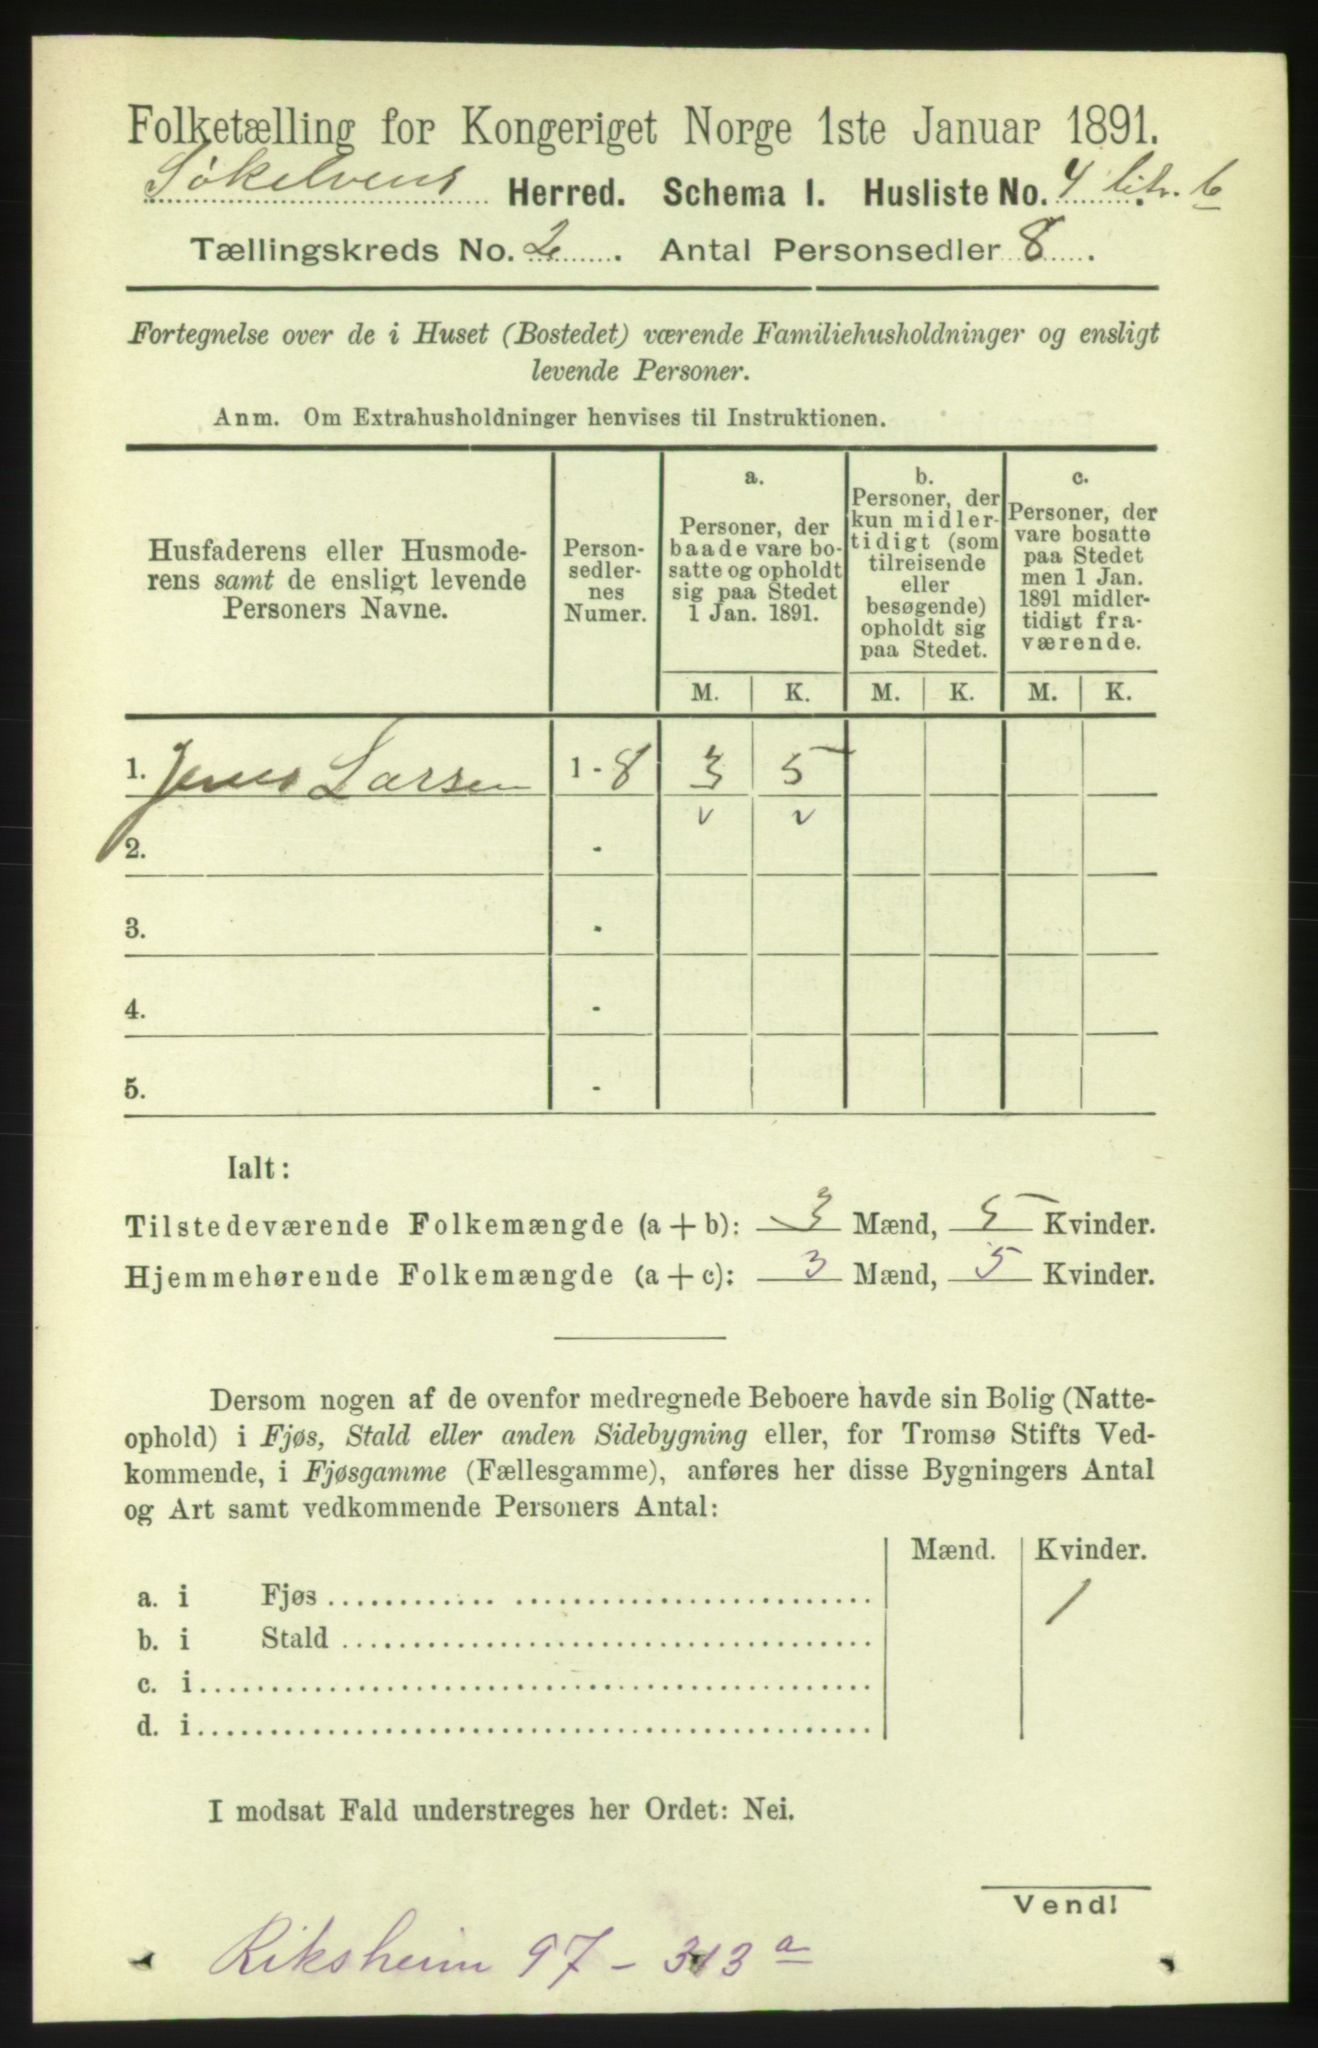 Folketælling for Kongeriget Norge 1ste Januar 1891.
Søkelvens Herred. Schema I. Husliste No. 4 litr. b
Tællingskreds No. 2. Antal Personsedler 8.
Fortegnelse over de i Huset (Bostedet) værende Familiehusholdninger og ensligt
levende Personer.
Anm. Om Extrahusholdninger henvises til Instruktionen.
Husfaderens eller Husmode-
rens samt de ensligt levende
Personers Navne.
Person-
sedler-
nes
Numer.
a.
Personer, der
baade vare bo-
satte og opholdt
sig paa Stedet
1 Jan. 1891.
b.
Personer, der
kun midler-
tidigt (som
tilreisende
eller
besøgende)
opholdt sig
paa Stedet.
c.
Personer, der
vare bosatte
paa Stedet
men 1 Jan.
1891 midler-
tidigt fra-
værende.
M. K. M. K. M. K.
1. Jens Larsen 1 - 8 3 5
v v
2. -
3. -
4. -
5. -
Ialt:
Tilstedeværende Folkemængde (a + b): 3 Mænd, 5 Kvinder.
Hjemmehørende Folkemængde (a + c): 3 Mænd, 5 Kvinder.
Dersom nogen af de ovenfor medregnede Beboere havde sin Bolig (Natte-
ophold) i Fjøs, Stald eller anden Sidebygning eller, for Tromsø Stifts Ved-
kommende, i Fjøsgamme (Fællesgamme), anføres her disse Bygningers Antal
og Art samt vedkommende Personers Antal:
Mænd. Kvinder.
a. i Fjøs ............ ......................... 1
b. i Stald .....................................
c. i...............................................
d. i...............................................
I modsat Fald understreges her Ordet: Nei.
Vend!
Riksheim 97 - 313 a